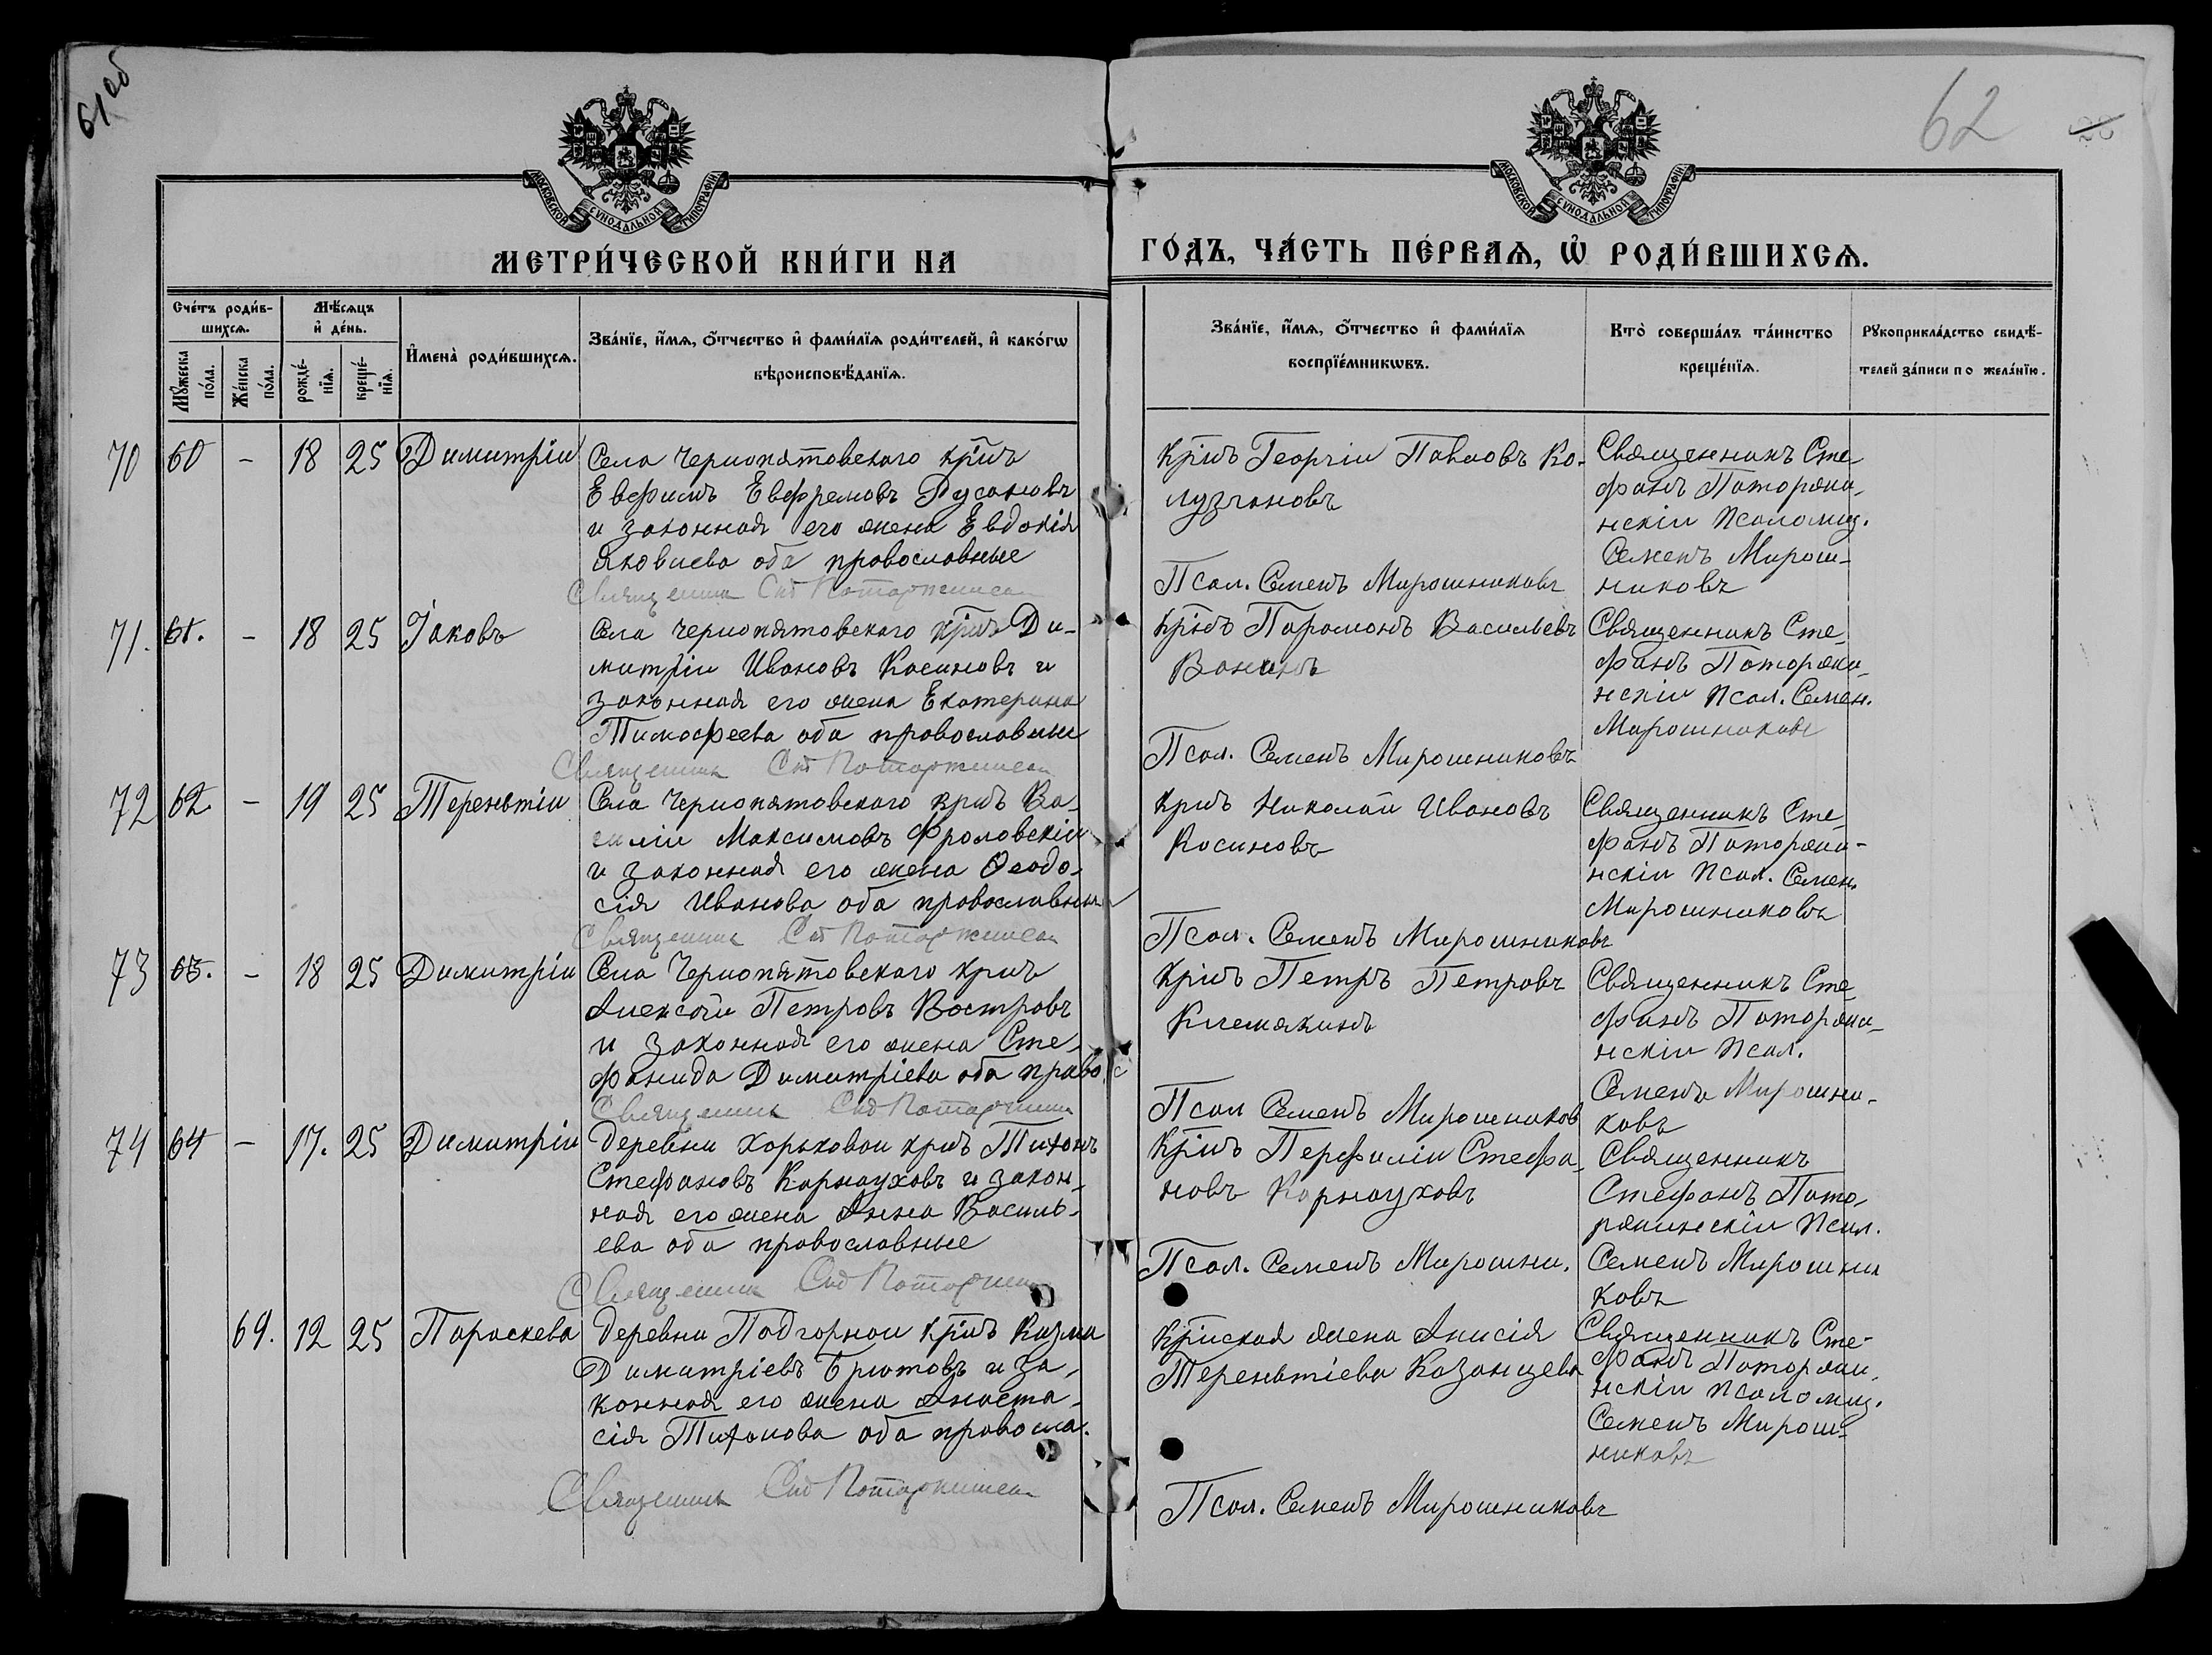 61 об
62
МОСКОВСКОЙ СѴНОДАЛЬНОЙ ТИПОГРАФІИ
МОСКОВСКОЙ СѴНОДАЛЬНОЙ ТИПОГРАФІИ
МЕТРИ́ЧЕСКОЙ КНИ́ГИ НА
ГО́ДЪ, ЧА́СТЬ ПЕ́РВАѦ, Ѡ҆ РОДИ́ВШИХСѦ.
Сче́тъ роди́в-
шихсѧ.
Мѣ́сѧцъ
и҆ де́нь.
Мꙋ́жеска
по́ла.
Же́нска
по́ла.
рожде́-
нїѧ.
креще́-
нїѧ.
И҆мена̀ роди́вшихсѧ.
Зва́нїе, и҆́мѧ, ѻ҆́тчество и҆ фами́лїѧ роди́телей, и҆ како́гѡ
вѣроисповѣ́данїѧ.
Зва́нїе, и҆́мѧ, ѻ҆́тчество и҆ фами́лїѧ
воспрїе́мникѡвъ.
Кто̀ соверша́лъ та́инство
креще́нїѧ.
Рꙋкоприкла́дство свидѣ́-
телей за́писи по жела́нїю.
70 60 - 18 25 Димитрiи
Села Чернопятовскаго крнъ
Евфимъ Евфремовъ Русановъ
и законная его жена Евдокiя
Яковлева оба православные
Священникъ
Крнъ Георгiи Павловъ Ко-
лузановъ
Псал. Семенъ Мирошниковъ
Священникъ Сте
фанъ Поторжи-
нскiи псаломщ.
Семенъ Мирош-
никовъ
71. 61. - 18 25 Iаковъ
Села Чернопятовскаго крнъ Ди-
митрiи Ивановъ Косиновъ и
законная его жена Екатерина
Тимофеева оба православные
Священникъ
Крнъ Парамонъ Васильевъ
Ванинъ
Псал. Семенъ Мирошниковъ
Священникъ Сте-
фанъ Поторжи-
нскiи псал. Семен.
Мирошниковъ
72 62 - 19 25 Терентьiи
Села Чернопятовскаго крнъ Ва-
силiи Максимовъ Фроловскiи
и законная его жена Ѳеодо-
сiя Иванова оба православные
Священникъ
Крнъ Николаи Ивановъ
Косиновъ
Псал. Семенъ Мирошниковъ
Священникъ Сте-
фанъ Поторжи-
нскiи псал. Семен.
Мирошниковъ
73 63. - 18 25 Димитрiи
Села Чернопятовскаго крнъ
Алексѣи Петровъ Востровъ
и законная его жена Сте-
фанида Димитрiева оба правос
Священникъ
Крнъ Петръ Петровъ
Клемякинъ
Псал Семенъ Мирошников
Священникъ Сте
фанъ Поторжи-
нскiи псал.
Семенъ Мирошни-
ковъ
74 64 - 17. 25 Димитрiи
деревни Хорьковои крнъ Тихонъ
Стефановъ Карнауховъ и закон-
ная его жена Анна Василь-
ева оба православные
Священникъ
Крнъ Перфилiи Стефа-
новъ Карнауховъ
Псал. Семенъ Мирошни.
Священникъ
Стефанъ Пото-
ржинскiи псал.
Семенъ Мирошни
ковъ
69. 12 25 Параскева
деревни Подгорнои крнъ Козма
Димитрiевъ Брютовъ и за-
конная его жена Анаста-
сiя Тихонова оба правосла.
Священникъ
Крнская жена Анисiя
Терентьiева Казанцева
Псал. Семенъ Мирошниковъ
Священникъ Сте-
фанъ Поторжи-
нскiи псаломщ.
Семенъ Мирош-
никовъ